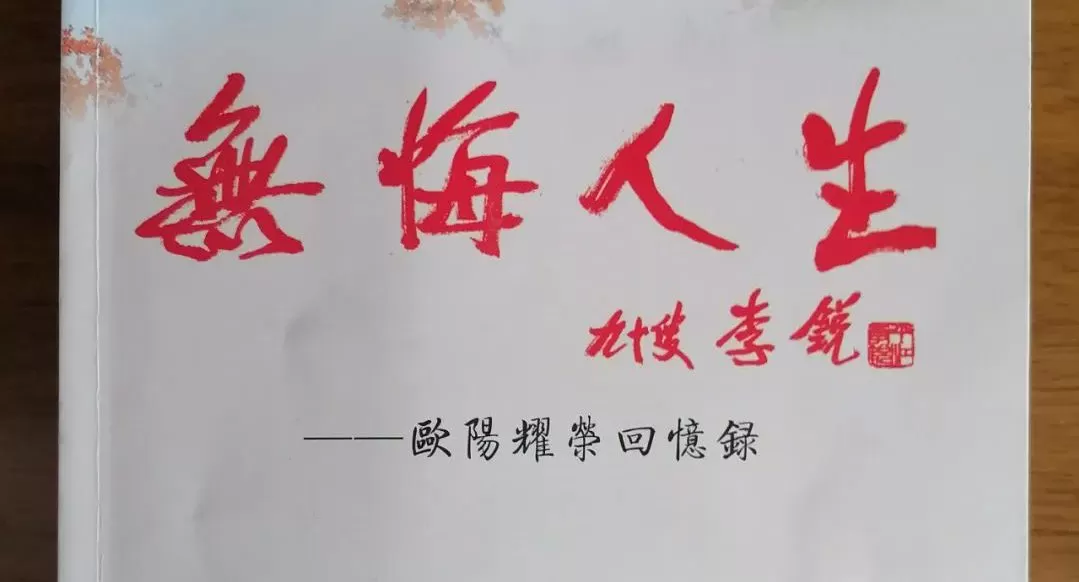 無悔人生
九十叟 李銳
——歐陽耀榮回憶録